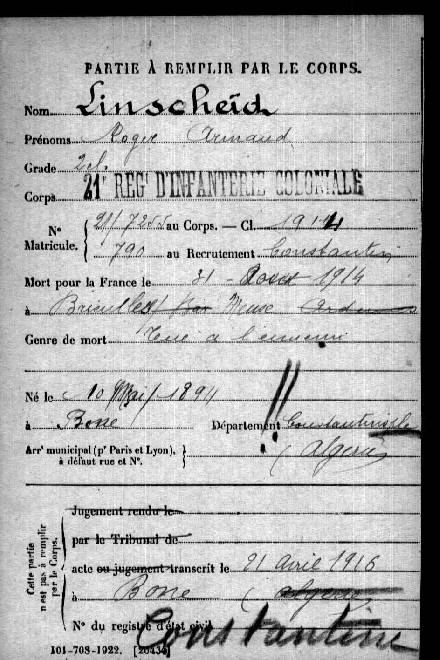 PARTIE À REMPLIR PAR LE CORPS.
Nom Linscheid
Prénoms Roger Armand
Grade 2 cl.
Corps 21e REGt D'INFANTERIE COLONIALE
N° Matricule. 21/7255 au Corps. — Cl. 1914
790 au Recrutement Constantine
Mort pour la France le 31 - Aout 1914
à Meuse Ardennes
Genre de mort Tué à l'ennemi
Né le 10 Mai 1894
à Bone Département Constantine
Arrt municipal (pr Paris et Lyon), à défaut rue et N°. (Algérie)
Cette partie n'est pas à remplir par le Corps.
Jugement rendu le
par le Tribunal de
acte ou jugement transcrit le 21 Avril 1916
à Bone (Algérie)
N° du registre d'état civil
Constantine
101-708-1922. [26434]